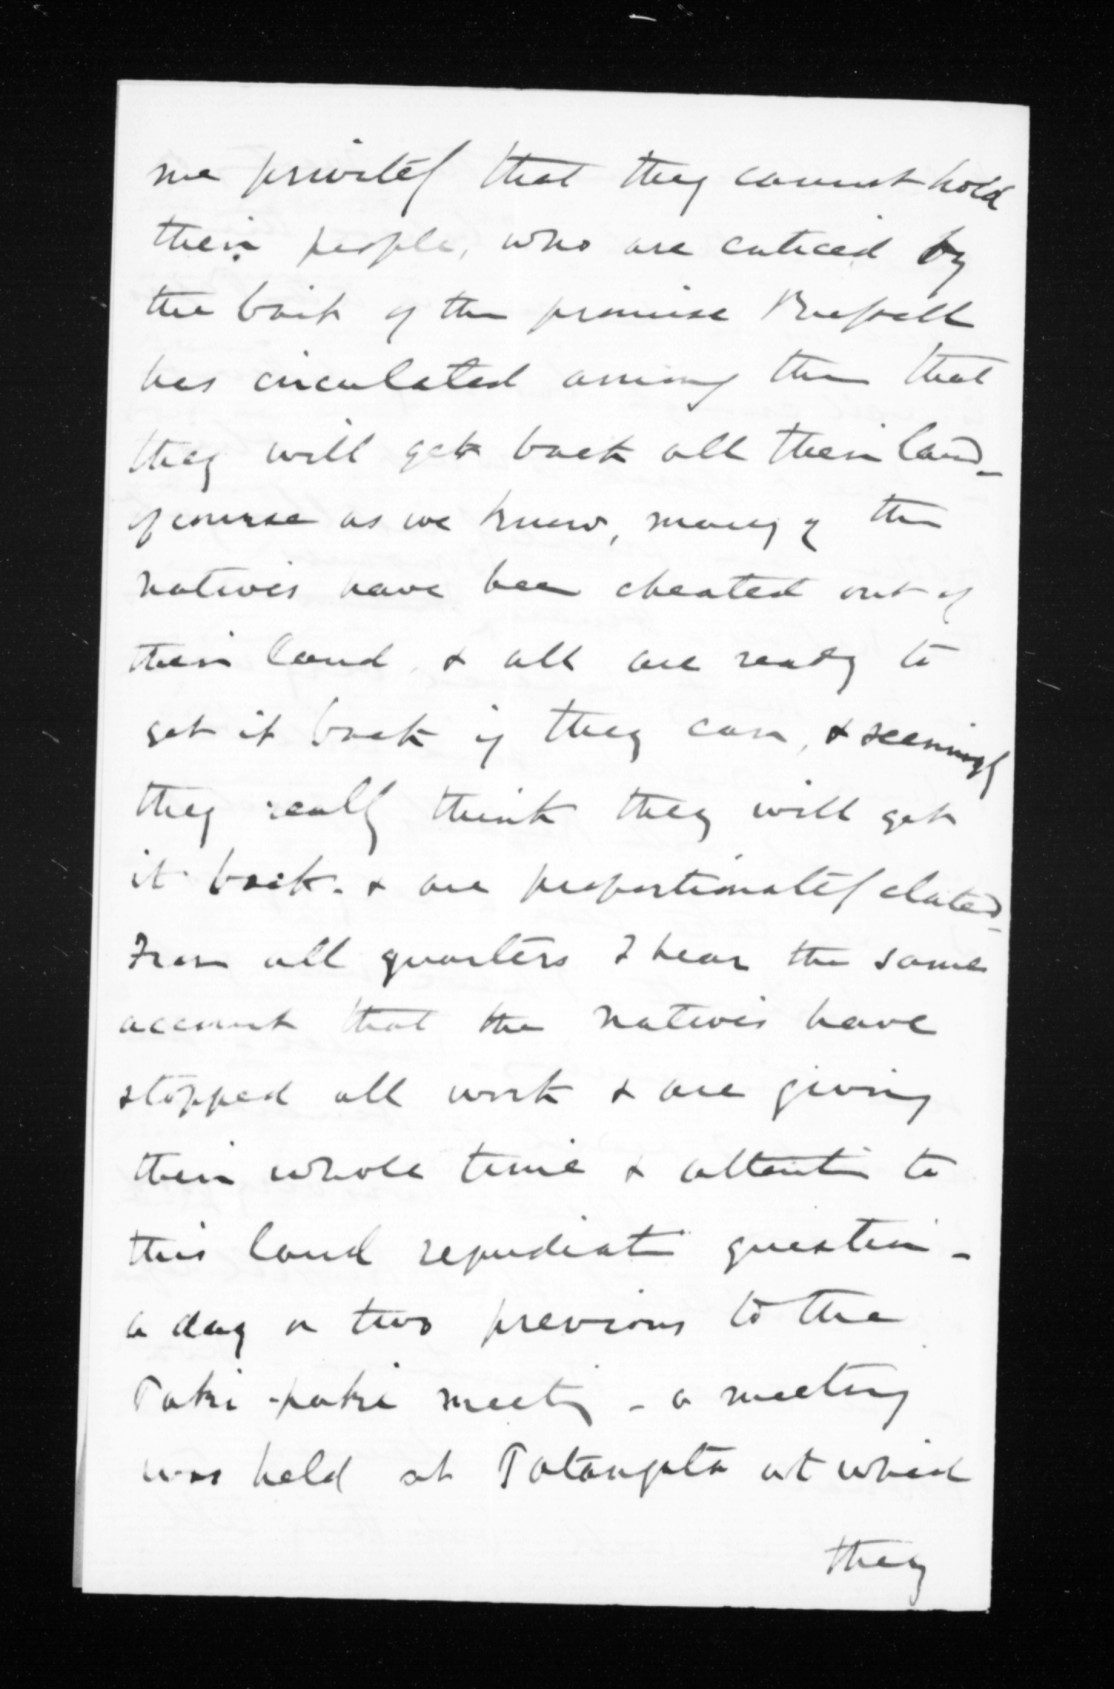 me privately that they cannot hold
their people, who are enticed by
the bait of the promise Russell
has circulated among them that
they will get back all their land -
of course as we know, many of the
natives have been cheated out of
their land & all are ready to
get it back if they can, & seemingly
they really think they will get
it back - & are proportionately elated -
From all quarters I hear the same
account that the natives have
stopped all work & are giving
their whole time & attention to
this land repudiation question -
a day or two previous to the
Paki-paki meeting - a meeting
was held at Patangata at which
they